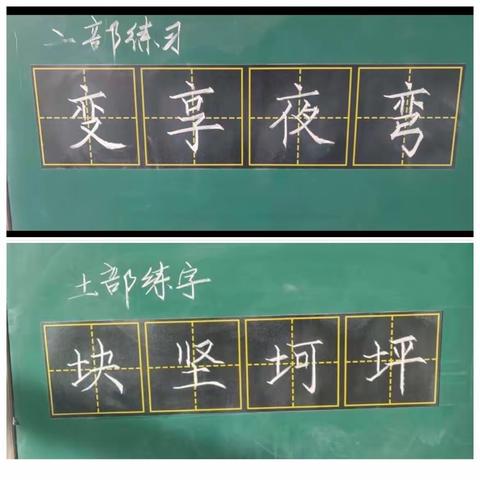 亠部练习
变享夜弯
土部练字
块坚坷坪